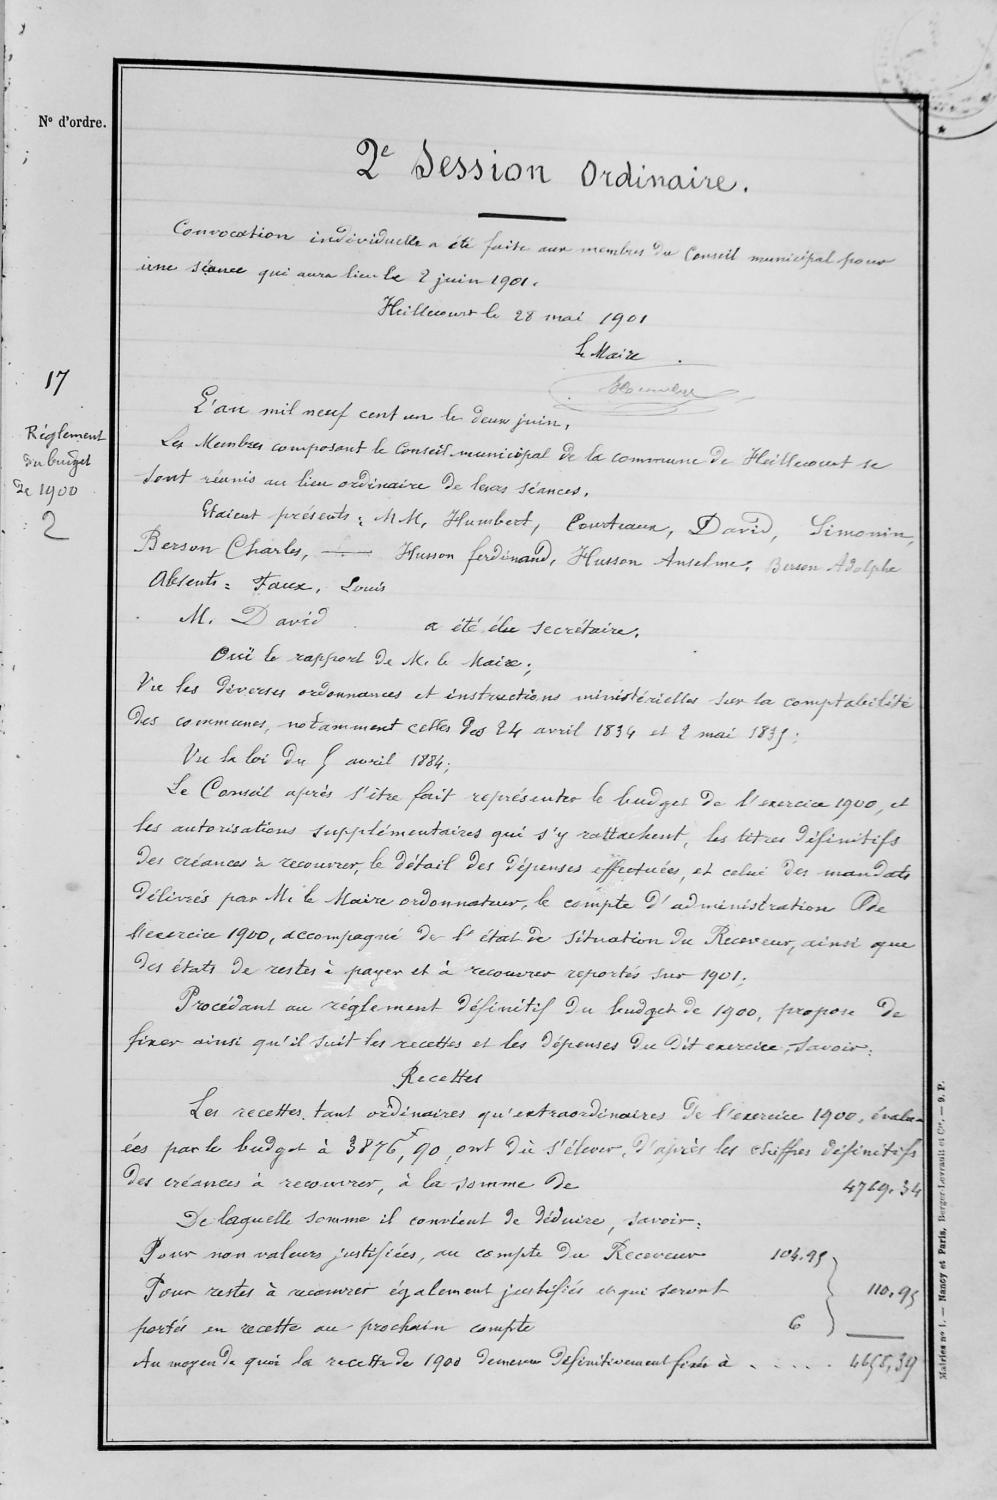 N° d'ordre.
2e Session Ordinaire.
Convocation individuelle a été faite aux membres du Conseil municipal pour
une séance qui aura lieu le 2 juin 1901.
Heillecourt le 28 mai 1901
Le Maire
17
Réglement
du budget
de 1900
2
L'an mil neuf cent un le deux juin,
Les Membres composant le Conseil municipal de la commune de Heillecourt se
sont réunis au lieu ordinaire de leurs séances.
Etaient présents : MM. Humbert, Courteaux, David, Simonin,
Berson Charles, Husson ferdinand, Husson Anselme, Berson Adolphe
Absents = Faux, Louis
M. David a été élu secrétaire.
Ouï le rapport de M. le Maire ;
Vu les diverses ordonnances et instructions ministérielles sur la comptabilité
des communes, notamment celles des 24 avril 1834 et 2 mai 1835 ;
Vu la loi du 5 avril 1884 ;
Le Conseil après s'être fait représenter le budget de l'exercice 1900, et
les autorisations supplémentaires qui s'y rattachent, les titres définitifs
des créances à recouvrer, le détail des dépenses effectuées, et celui des mandats
délivrés par M. le Maire ordonnateur, le compte d'administration de
l'exercice 1900, accompagné de l'état de situation du Receveur, ainsi que
des états de restes à payer et à recouvrer reportés sur 1901 ;
Procédant au réglement définitif du budget de 1900, propose de
fixer ainsi qu'il suit les recettes et les dépenses du dit exercice, savoir :
Recettes
Les recettes tant ordinaires qu'extraordinaires de l'exercice 1900, évalu-
ées par le budget à 3876f,90, ont dû s'élever, d'après les chiffres définitifs
des créances à recouvrer, à la somme de 4769.34
De laquelle somme il convient de déduire, savoir :
Pour non valeurs justifiées, au compte du Receveur 104.95
Pour restes à recouvrer également justifiés et qui seront 110.95
portés en recette au prochain compte 6
Au moyen de quoi la recette de 1900 demeure définitivement fixée à . . . . 4658,39
Mairies n° 1. — Nancy et Paris, Berger-Levrault et Cie. — 9. P.